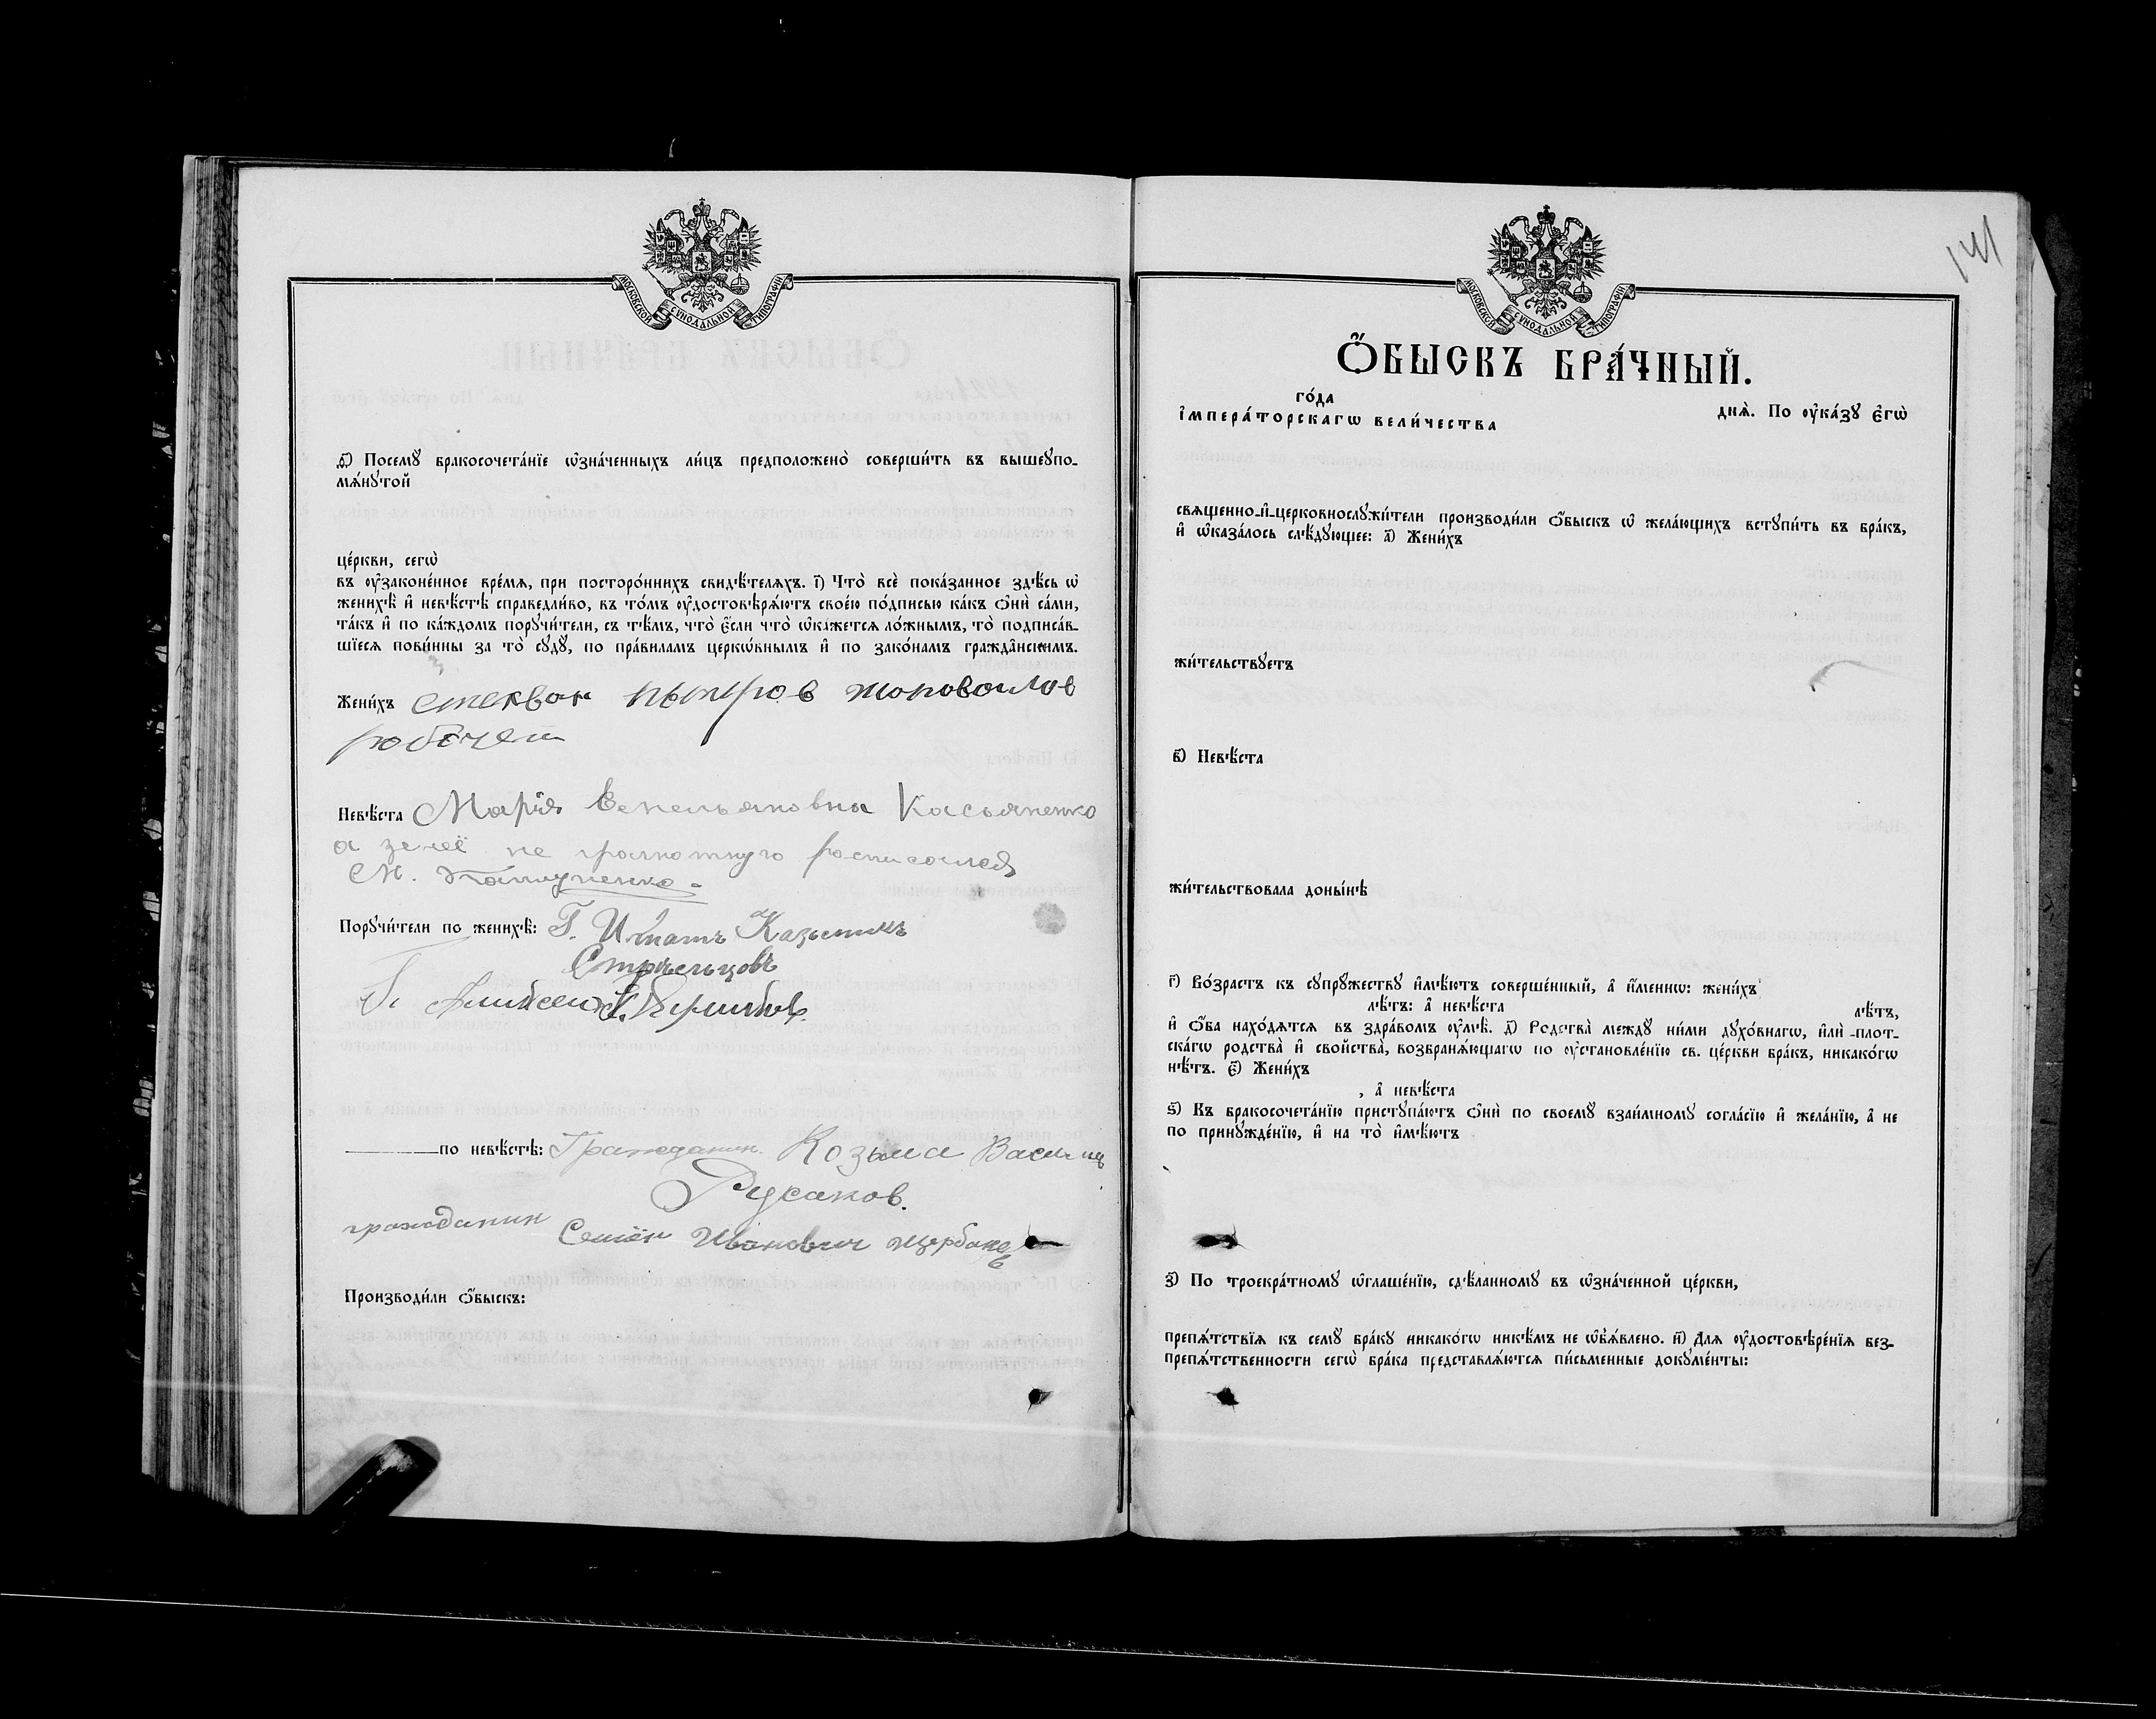 МОСКОВСКОЙ СѴНОДАЛЬНОЙ ТИПОГРАФІИ
д҃) Посемꙋ̀ бракосочета́нїе ѡ҆зна́ченныхъ ли́цъ предположено̀ соверши́ть въ вышеꙋпо-
мѧ́нꙋтой
це́ркви, сегѡ̀
въ ᲂу҆законе́нное вре́мѧ, при посторо́ннихъ свидѣ́телѧхъ. і҃) Что̀ всѐ пока́занное здѣ́сь ѡ҆
женихѣ̀ и҆ невѣ́стѣ справедли́во, въ то́мъ ᲂу҆достовѣрѧ́ютъ свое́ю по́дписью ка́къ ѻ҆нѝ са́ми,
та́къ и҆ по ка́ждомъ порꙋчи́тели, съ тѣ́мъ, что̀ є҆́сли что̀ ѡ҆ка́жетсѧ ло́жнымъ, то̀ подписа́в-
шїесѧ пови́нны за то̀ сꙋдꙋ̀, по пра́виламъ церкѡ́внымъ и҆ по зако́намъ гражда̑нскимъ.
Жени́хъ
Невѣ́ста Марія Емельяновна Касьяненко
а за неё не грамотную росписался
М.
Порꙋчи́тели по женихѣ̀: Г. Игнатъ Казьмичъ
Стрѣльцовъ
Г.
по невѣ́стѣ: Гражданин Козьма Василич
Русаков.
гражданин Семён Иванович Щербаков
Производи́ли ѻ҆́быскъ:
141
МОСКОВСКОЙ СѴНОДАЛЬНОЙ ТИПОГРАФІИ
Ѻ҆́БЫСКЪ БРА́ЧНЫЙ.
го́да дня̀. По ᲂу҆ка́зꙋ є҆гѡ̀
і҆мпера́торскагѡ вели́чества
священно-и҆-церковнослꙋжи́тели производи́ли ѻ҆́быскъ ѡ҆ жела́ющихъ встꙋпи́ть въ бра́къ,
и҆ ѡ҆каза́лось слѣ́дꙋющее: а҃) Жени́хъ
жи́тельствꙋетъ
в҃) Невѣ́ста
жи́тельствовала доны́нѣ
г҃) Во́зрастъ къ сꙋпрꙋ́жествꙋ и҆мѣ́ютъ соверше́нный, а҆ и҆́меннѡ: жени́хъ
лѣ́тъ: а҆ невѣ́ста лѣ́тъ,
и҆ ѻ҆́ба нахо́дѧтсѧ въ здра́вомъ ᲂу҆мѣ̀. д҃) Родства̀ междꙋ̀ ни́ми дꙋхо́внагѡ, и҆лѝ плот-
ска́гѡ родства̀ и҆ свойства̀, возбранѧ́ющагѡ по ᲂу҆становле́нїю св. це́ркви бра́къ, никако́гѡ
нѣ́тъ. є҃) Жени́хъ
, а҆ невѣ́ста
ѕ҃) Къ бракосочета́нїю пристꙋпа́ютъ ѻ҆нѝ по своемꙋ̀ взаи́мномꙋ согла́сїю и҆ жела́нїю, а҆ не
по принꙋжде́нїю, и҆ на то̀ и҆мѣ́ютъ
з҃) По троекра́тномꙋ ѡ҆глаше́нїю, сдѣ́ланномꙋ въ ѡ҆зна́ченной це́ркви,
препѧ́тствїѧ къ семꙋ̀ бра́кꙋ никако́гѡ никѣ́мъ не ѡ҆б̾ѧ́влено. и҃) Длѧ ᲂу҆достовѣре́нїѧ без-
препѧ́тственности сегѡ̀ бра́ка представлѧ́ютсѧ пи́сьменные докꙋме́нты: